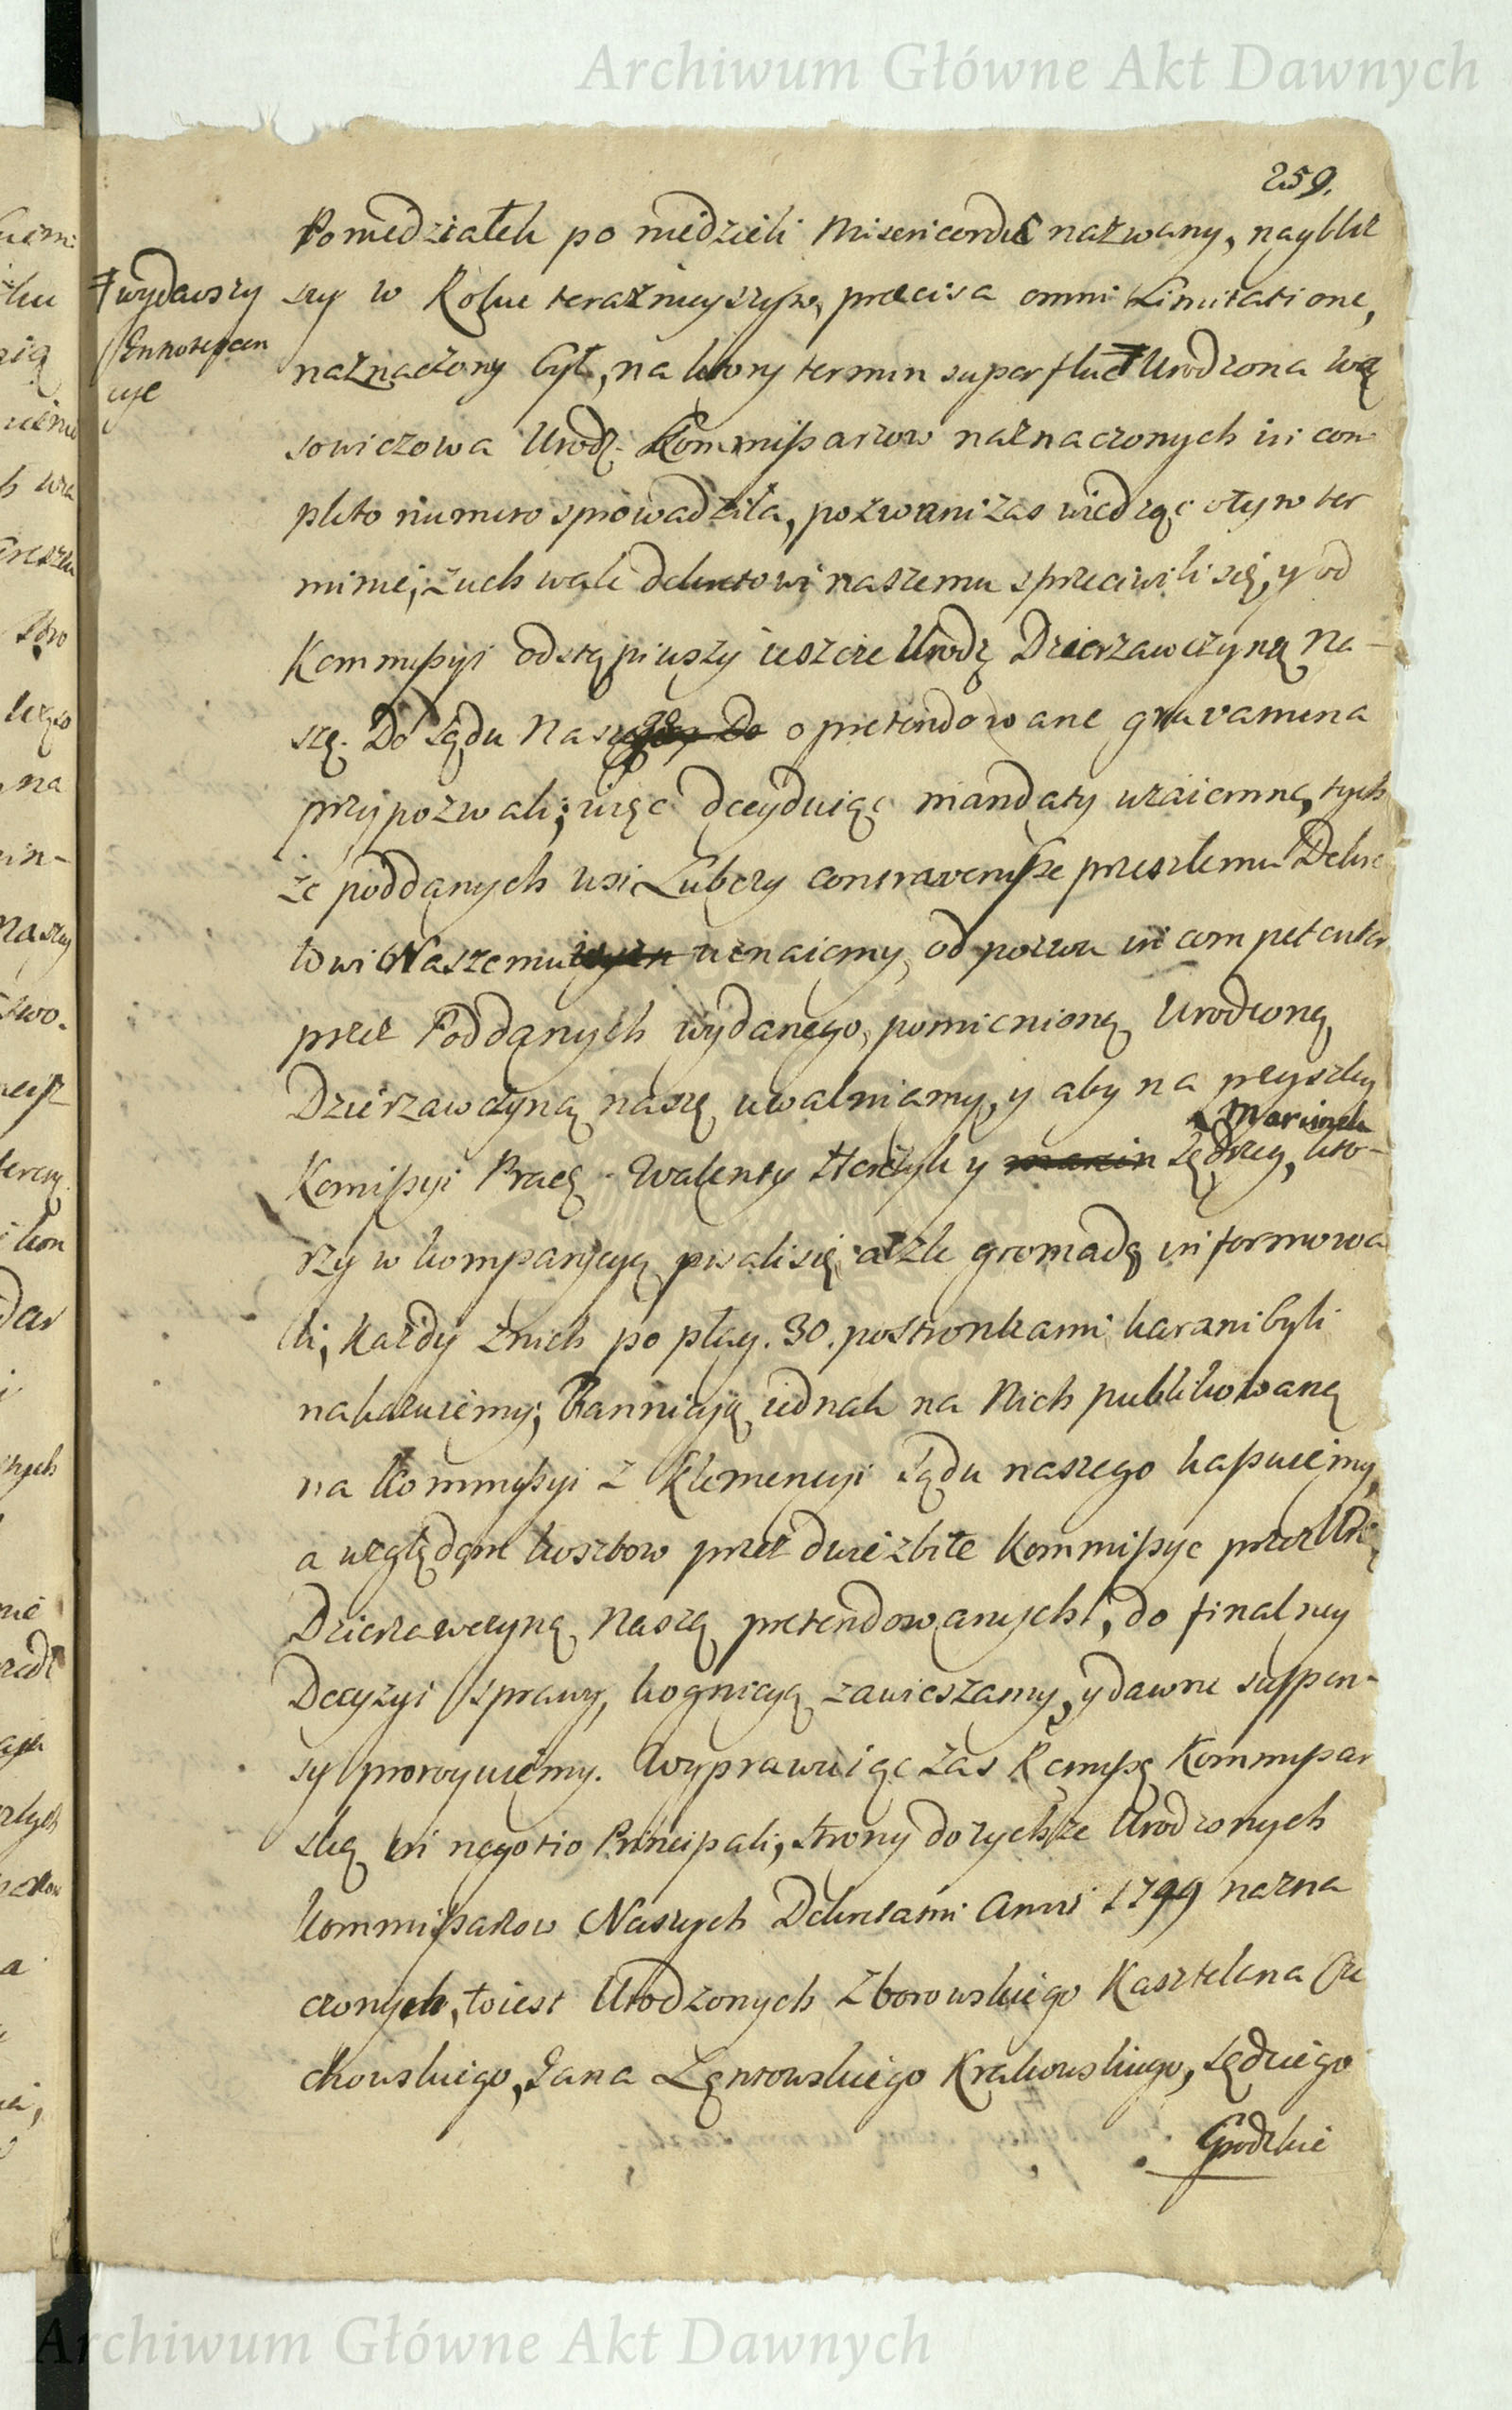 Archiwum Główne Akt Dawnych
259.
Poniedziałek po niedzieli Misericordiæ nazwany, naybliż
szy w Roku teraznieyszym, præcisa omni Limitatione,
naznaczony był, na ktory termin superflue Ŧ Urodzona Wą
sowiczowa Urodz. Kommissarzow naznaczonych in com
pleto numero sprowadziła, pozwani zas wiedząc o tym ter
minie, zuchwale dekretowi naszemu sprzeciwili się, y od
Kommissyi odstąpiwszy ieszcze Urodz Dzierzawczynę Na-
szę. Do Sądu Naszego o pretendowane gravamina
przypozwali; więc decyduiąc mandaty wzaiemne, tych
że poddanych wsi Lubczy contravenisse przeszłemu Dekre
towi Naszemu uznaiemy, od pozwu incompetenter
przez Poddanych wydanego, pomienioną Urodzoną
Dzierzawczynę naszę uwalniamy, y aby na przyszłey
Marcinek
Komissyi Pracę Walenty y marcin Sędrey, kto-
rzy w komparycyą pisali się, a zle gromadę informowa
li, każdy z nich po plag. 30. postronkami karani byli
nakazuiemy; Bannicyią iednak na Nich publikowaną
na Kommissyi z Klemencyi Sądu naszego kassuiemy,
a względem kosztow przez dwie zbite Kommissye przez Urodz
Dzierzawczynę Naszę pretendowanych, do finalney
Decyzyi sprawy, kognicyą zawieszamy, y dawne suspen-
sy proroguiemy. Wyprawuiąc zas Remissę Kommissar
ską in negotio Principali, strony do tychże Urodzonych
Kommissarzow Naszych Dekretami Anni 1799 nazna
czonych, to iest Urodzonych Zborowskiego Kasztelana Cze
chowskiego, Jana Łętowskiego Krakowskiego, Sędziego
Grodzkie
Ŧ wydawszy
Innotescen
cye
Archiwum Główne Akt Dawnych